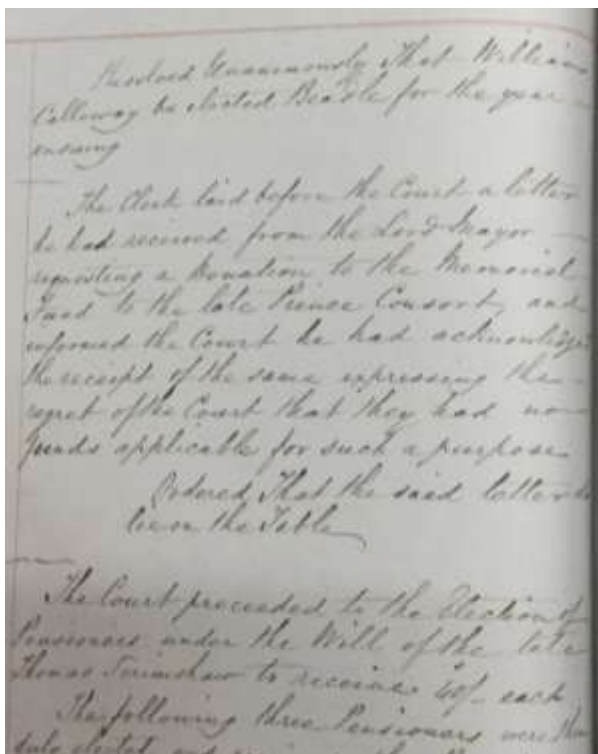 Resolved Unanimously That William
Calloway be elected Beadle for the year
ensuing
The Clerk laid before the Court a letter
he had received from the Lord Mayor
requesting a donation to the Memorial
Fund to the late Prince Consort, and
informed the Court he had acknowledged
the receipt of the same expressing the
regret of the Court that they had no
funds applicable for such a purpose
Ordered That the said letter do
lie on the Table
The Court proceeded to the Election of
Pensioners under the Will of the late
Thomas to receive 40/- each
The following three Pensioners were then
duly elected and